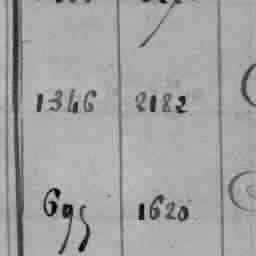 1346 2182
695 1620